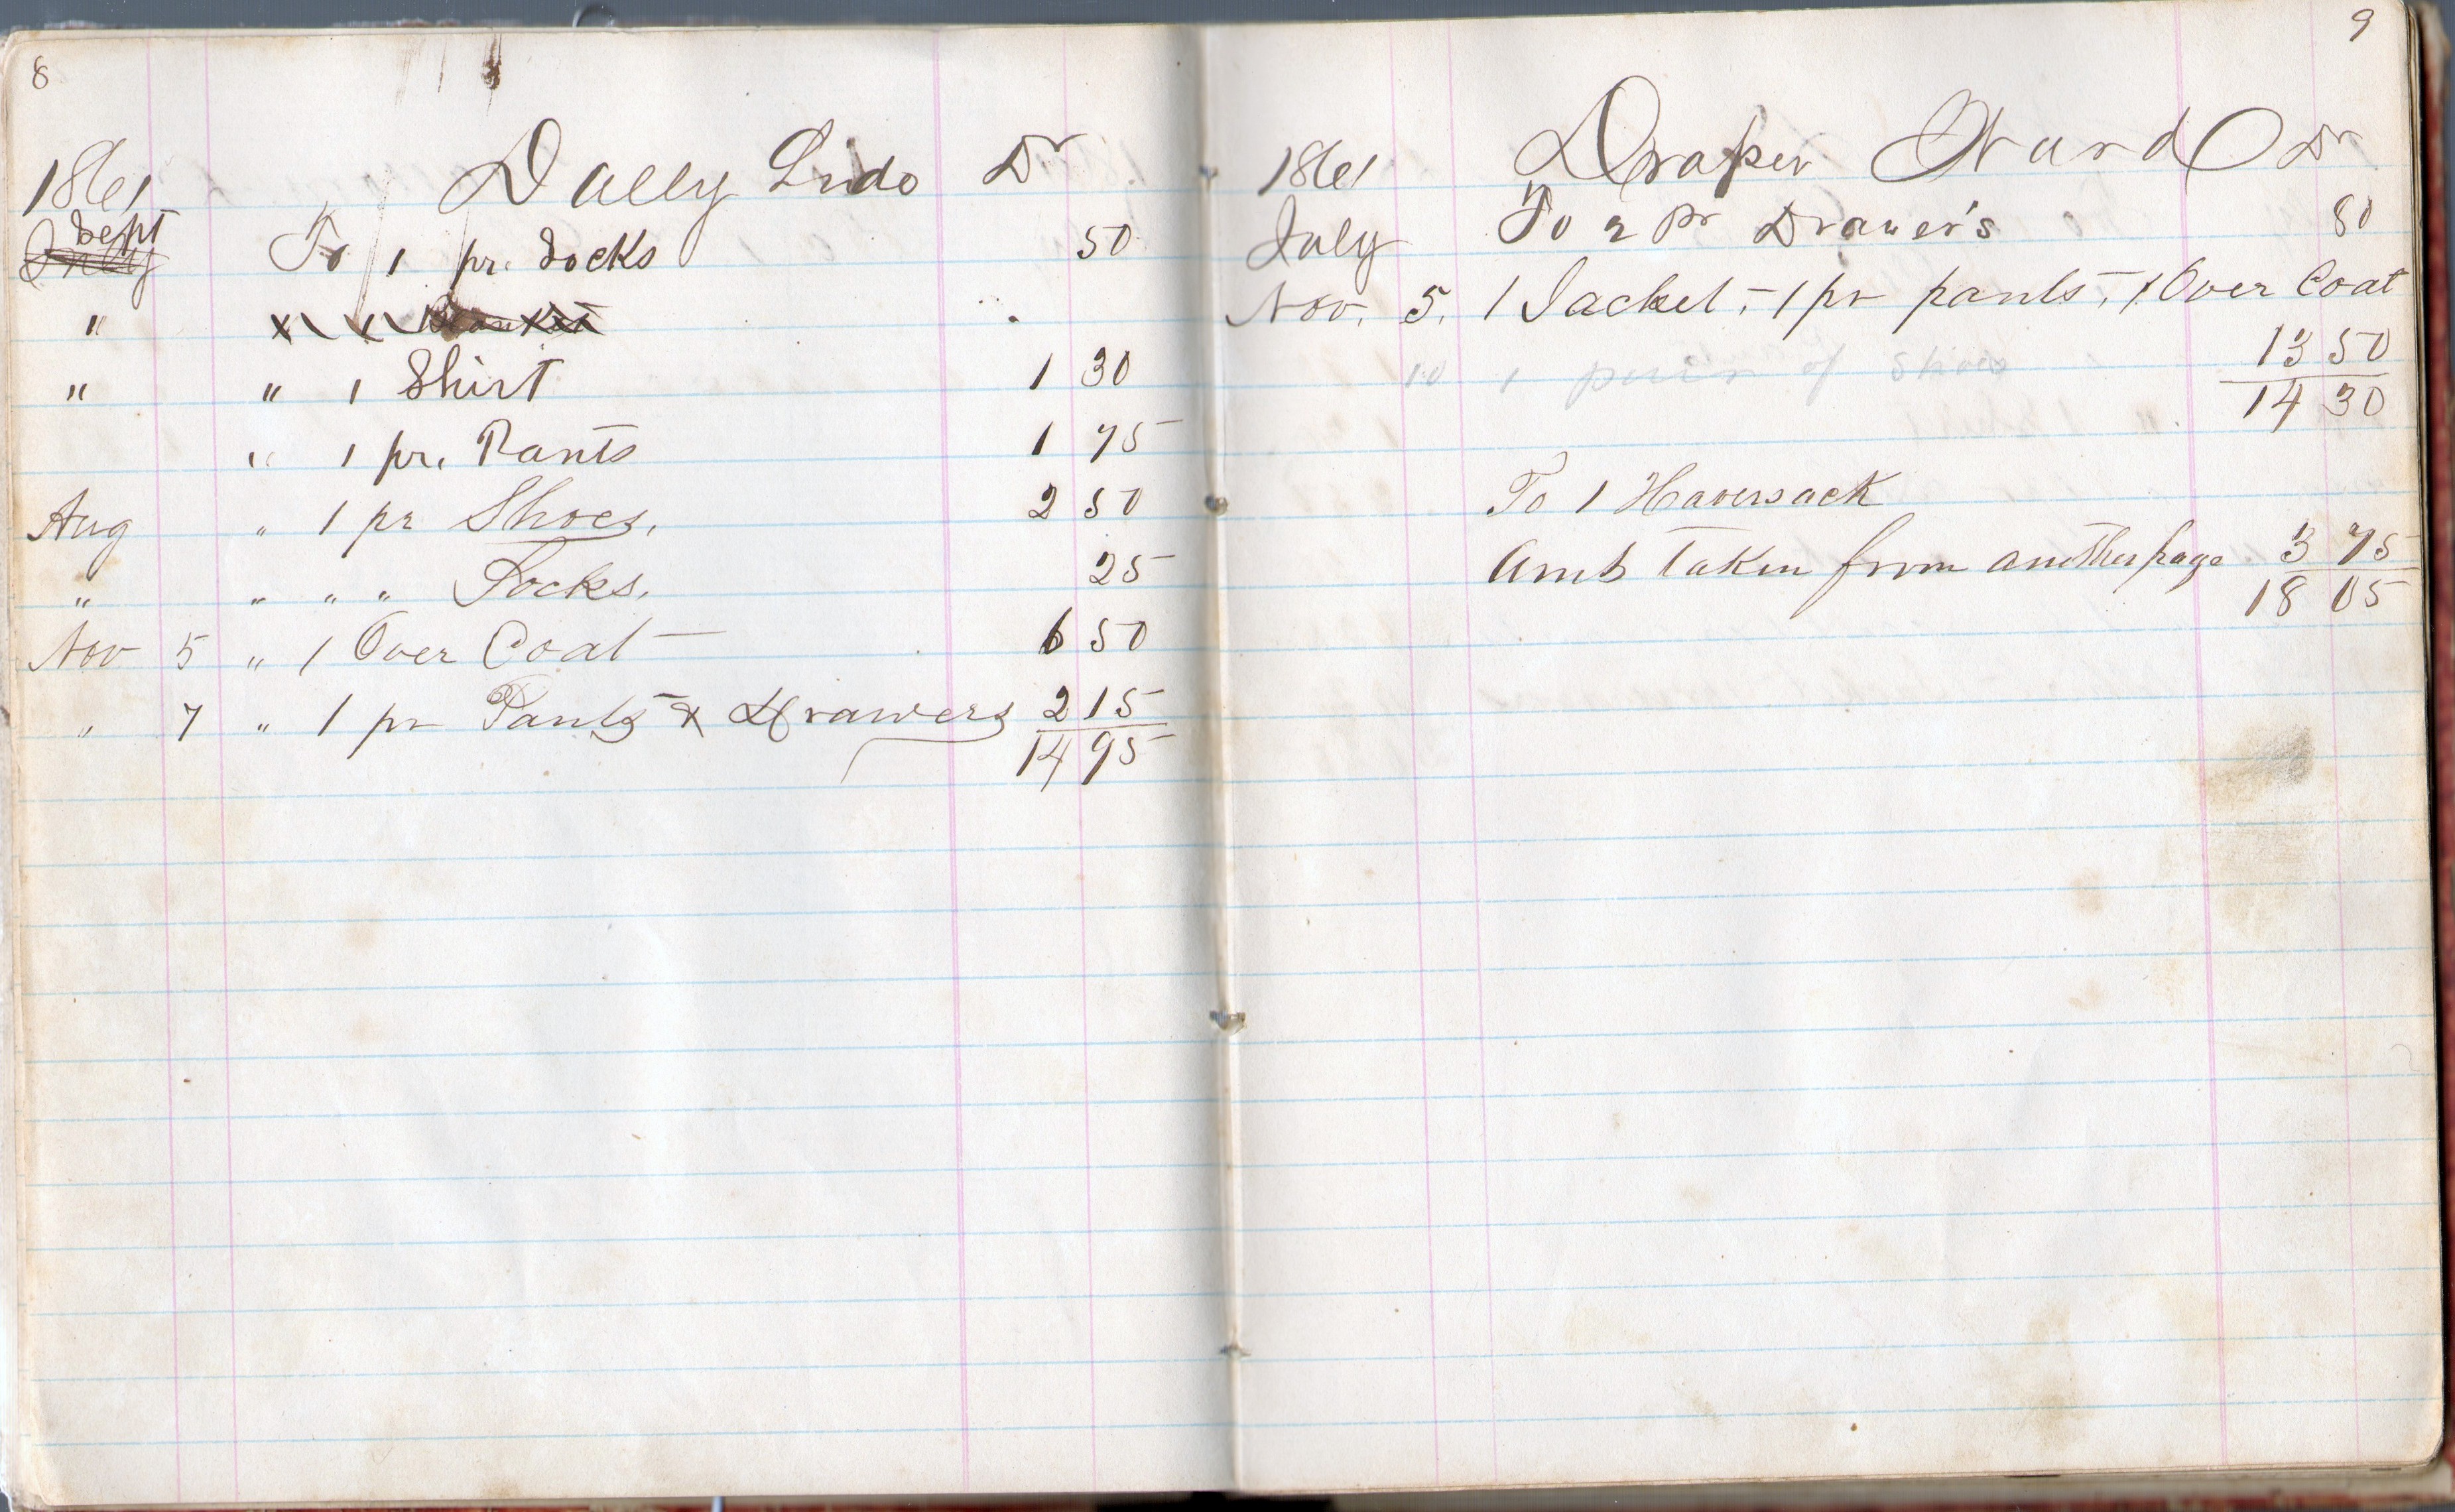 8
1861 Dally Ludo Dr
Sept
July To 1 pr. Socks 50
" " 1 Blanket
" " 1 Shirt 1 30
" 1 pr. Pants 1 75
Aug " 1 pr Shoes. 2 50
" " " " Socks. 25
Nov 5 " 1 Over Coat 6 50
" 7 " 1 pr Pants & Drawers 2 15
14 95
9
1861 Draper Ward Dr
July To 2 Pr Drawer's 80
Nov. 5. 1 Jacket, 1 pr pants, 1 Over Coat
13 50
10 1 pair of Shoes
14 30
To 1 Haversack
Amt taken from another page 3 75
18 05